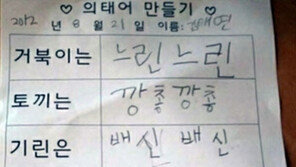 ♡ 의태어 만들기 ♡
2012년 8월 21일 이름:
거북이는 느린느린
토끼는 깡총깡총
기린은 배신 배신